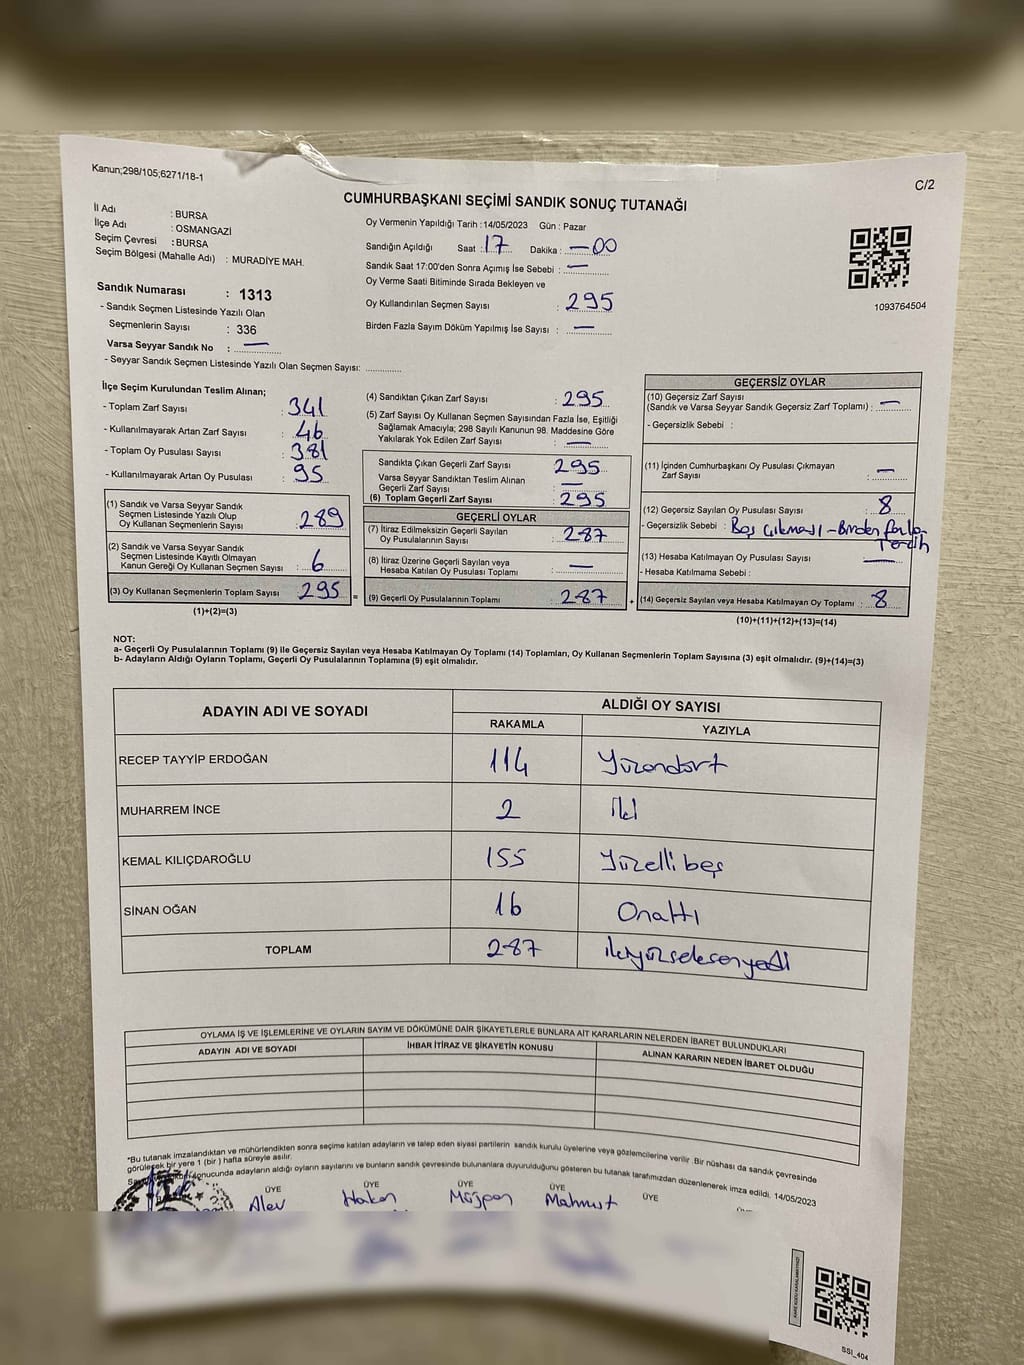 Kanun;298/105;6271/18-1
C/2
CUMHURBAŞKANI SEÇİMİ SANDIK SONUÇ TUTANAĞI
İl Adı : BURSA
İlçe Adı : OSMANGAZİ
Seçim Çevresi : BURSA
Seçim Bölgesi (Mahalle Adı) : MURADİYE MAH.
Sandık Numarası : 1313
- Sandık Seçmen Listesinde Yazılı Olan
Seçmenlerin Sayısı : 336
Varsa Seyyar Sandık No : —
- Seyyar Sandık Seçmen Listesinde Yazılı Olan Seçmen Sayısı: ..............
Oy Vermenin Yapıldığı Tarih : 14/05/2023 Gün : Pazar
Sandığın Açıldığı Saat : 17 Dakika : —00
Sandık Saat 17:00'den Sonra Açımış İse Sebebi : —
Oy Verme Saati Bitiminde Sırada Bekleyen ve
Oy Kullandırılan Seçmen Sayısı : 295
Birden Fazla Sayım Döküm Yapılmış İse Sayısı : —
1093764504
İlçe Seçim Kurulundan Teslim Alınan;
- Toplam Zarf Sayısı : 341
- Kullanılmayarak Artan Zarf Sayısı : 46
- Toplam Oy Pusulası Sayısı : 381
- Kullanılmayarak Artan Oy Pusulası : 95
(1) Sandık ve Varsa Seyyar Sandık
Seçmen Listesinde Yazılı Olup
Oy Kullanan Seçmenlerin Sayısı : 289
(2) Sandık ve Varsa Seyyar Sandık
Seçmen Listesinde Kayıtlı Olmayan
Kanun Gereği Oy Kullanan Seçmen Sayısı : 6
(3) Oy Kullanan Seçmenlerin Toplam Sayısı : 295
(1)+(2)=(3)
(4) Sandıktan Çıkan Zarf Sayısı : 295
(5) Zarf Sayısı Oy Kullanan Seçmen Sayısından Fazla İse, Eşitliği
Sağlamak Amacıyla; 298 Sayılı Kanunun 98. Maddesine Göre
Yakılarak Yok Edilen Zarf Sayısı : —
Sandıkta Çıkan Geçerli Zarf Sayısı 295
Varsa Seyyar Sandıktan Teslim Alınan
Geçerli Zarf Sayısı : —
(6) Toplam Geçerli Zarf Sayısı : 295
GEÇERLİ OYLAR
(7) İtiraz Edilmeksizin Geçerli Sayılan
Oy Pusulalarının Sayısı : 287
(8) İtiraz Üzerine Geçerli Sayılan veya
Hesaba Katılan Oy Pusulası Toplamı : —
(9) Geçerli Oy Pusulalarının Toplamı : 287
=
+
GEÇERSİZ OYLAR
(10) Geçersiz Zarf Sayısı
(Sandık ve Varsa Seyyar Sandık Geçersiz Zarf Toplamı) : —
- Geçersizlik Sebebi :
(11) İçinden Cumhurbaşkanı Oy Pusulası Çıkmayan
Zarf Sayısı : —
(12) Geçersiz Sayılan Oy Pusulası Sayısı : 8
- Geçersizlik Sebebi : Boş Çıkması - Birden fazla
Tercih
(13) Hesaba Katılmayan Oy Pusulası Sayısı —
- Hesaba Katılmama Sebebi :
(14) Geçersiz Sayılan veya Hesaba Katılmayan Oy Toplamı : 8
(10)+(11)+(12)+(13)=(14)
NOT:
a- Geçerli Oy Pusulalarının Toplamı (9) ile Geçersiz Sayılan veya Hesaba Katılmayan Oy Toplamı (14) Toplamları, Oy Kullanan Seçmenlerin Toplam Sayısına (3) eşit olmalıdır. (9)+(14)=(3)
b- Adayların Aldığı Oyların Toplamı, Geçerli Oy Pusulalarının Toplamına (9) eşit olmalıdır.
ADAYIN ADI VE SOYADI
ALDIĞI OY SAYISI
RAKAMLA YAZIYLA
RECEP TAYYİP ERDOĞAN 114 Yüzondört
MUHARREM İNCE 2 İki
KEMAL KILIÇDAROĞLU 155 Yüzelli beş
SİNAN OĞAN 16 Onaltı
TOPLAM 287 ikiyüzseksenyedi
OYLAMA İŞ VE İŞLEMLERİNE VE OYLARIN SAYIM VE DÖKÜMÜNE DAİR ŞİKAYETLERLE BUNLARA AİT KARARLARIN NELERDEN İBARET BULUNDUKLARI
ADAYIN ADI VE SOYADI İHBAR İTİRAZ VE ŞİKAYETİN KONUSU ALINAN KARARIN NEDEN İBARET OLDUĞU
*Bu tutanak imzalandıktan ve mühürlendikten sonra seçime katılan adayların ve talep eden siyasi partilerin sandık kurulu üyelerine veya gözlemcilerine verilir .Bir nüshası da sandık çevresinde
görülecek bir yere 1 (bir ) hafta süreyle asılır.
sonucunda adayların aldığı oyların sayılarını ve bunların sandık çevresinde bulunanlara duyurulduğunu gösteren bu tutanak tarafımızdan düzenlenerek imza edildi. 14/05/2023
ÜYE ÜYE ÜYE ÜYE ÜYE
Alev Hakan Müjgan Mahmut
SSİ_404